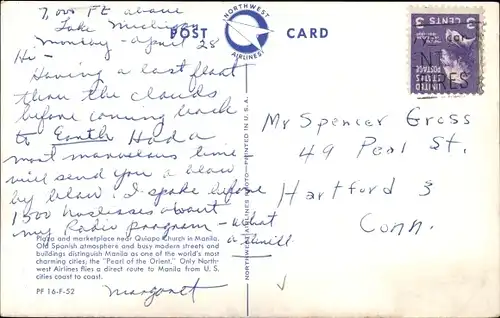 7,000 FT above
Lake Michigan
Monday - April 28
Hi -
Having a last float
thru the clouds
before coming back
to Earth Had a
most marvelous time
will send you a blow
by blow. I spoke before
1500 hostesses about
my Radio program - what
a thrill
Margaret
POST CARD
NORTHWEST
AIRLINES
3 CENTS 3
UNITED STATES
POSTAGE
Mr Spencer Gross
49 Pearl St.
Hartford 3
Conn.
NORTHWEST AIRLINES PHOTO—PRINTED IN U.S.A.
Plaza and marketplace near Quiapo Church in Manila.
Old Spanish atmosphere and busy modern streets and
buildings distinguish Manila as one of the world's most
charming cities, the "Pearl of the Orient." Only North-
west Airlines flies a direct route to Manila from U.S.
cities coast to coast.
PF 16-F-52